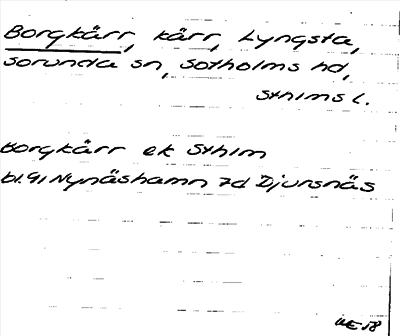 Borgkärr, kärr, Lyngsta,
Sorunda sn, Sotholms hd,
Sthlms l.
Borgkärr ek Sthlm
bl. 91 Nynäshamn 7d Djursnäs